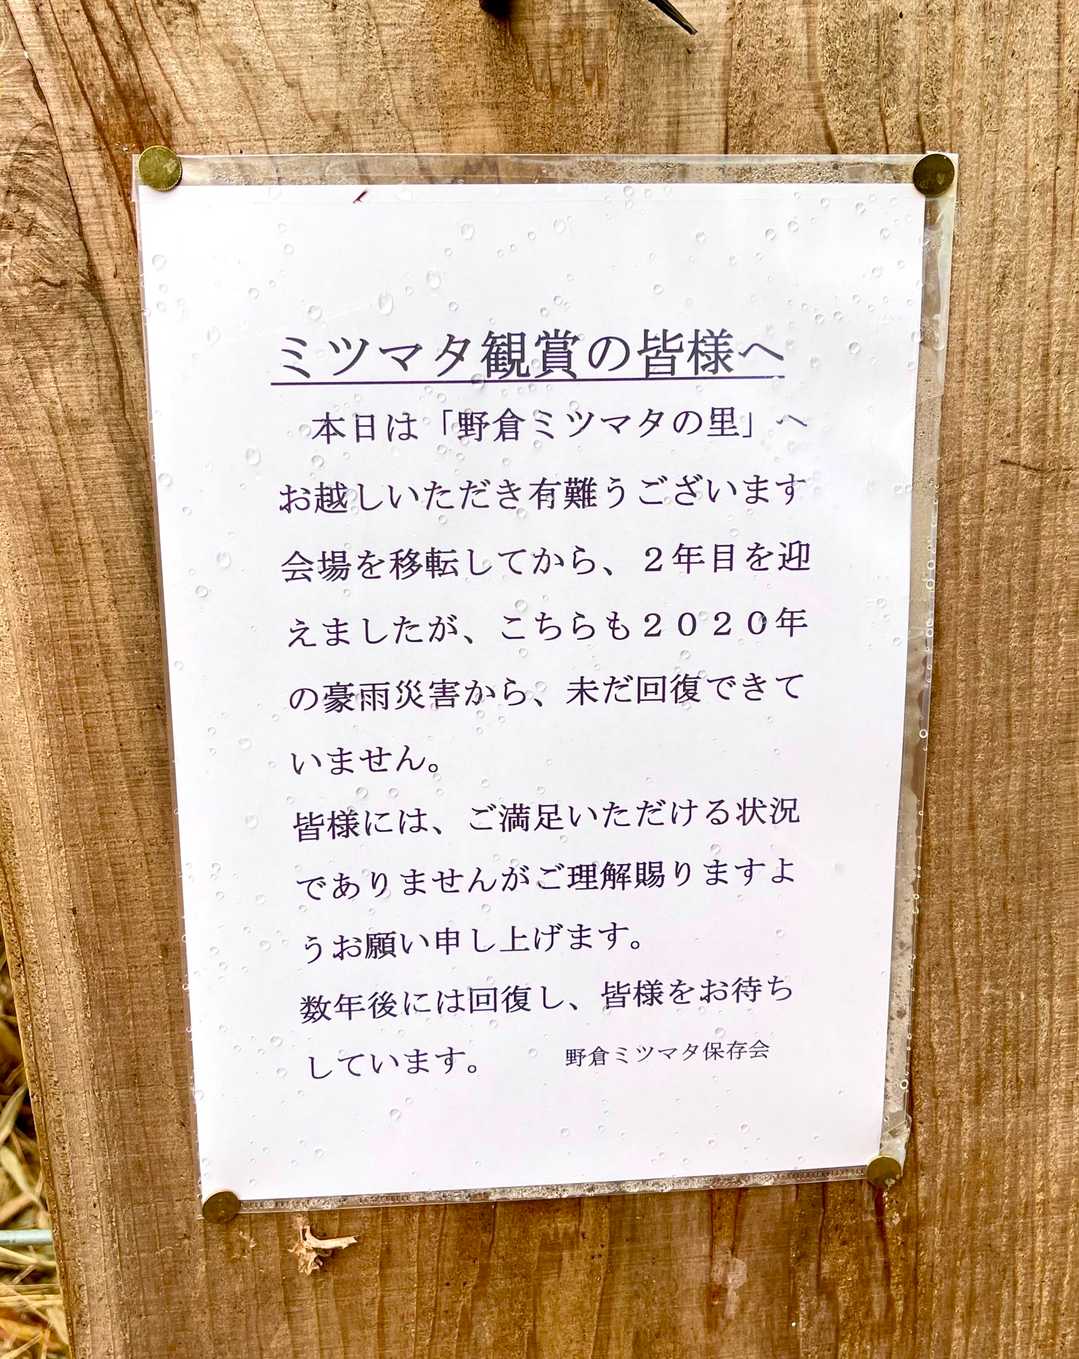 ミツマタ観賞の皆様へ
本日は「野倉ミツマタの里」へ
お越しいただき有難うございます
会場を移転してから、２年目を迎
えましたが、こちらも２０２０年
の豪雨災害から、未だ回復できて
いません。
皆様には、ご満足いただける状況
でありませんがご理解賜りますよ
うお願い申し上げます。
数年後には回復し、皆様をお待ち
しています。　　野倉ミツマタ保存会